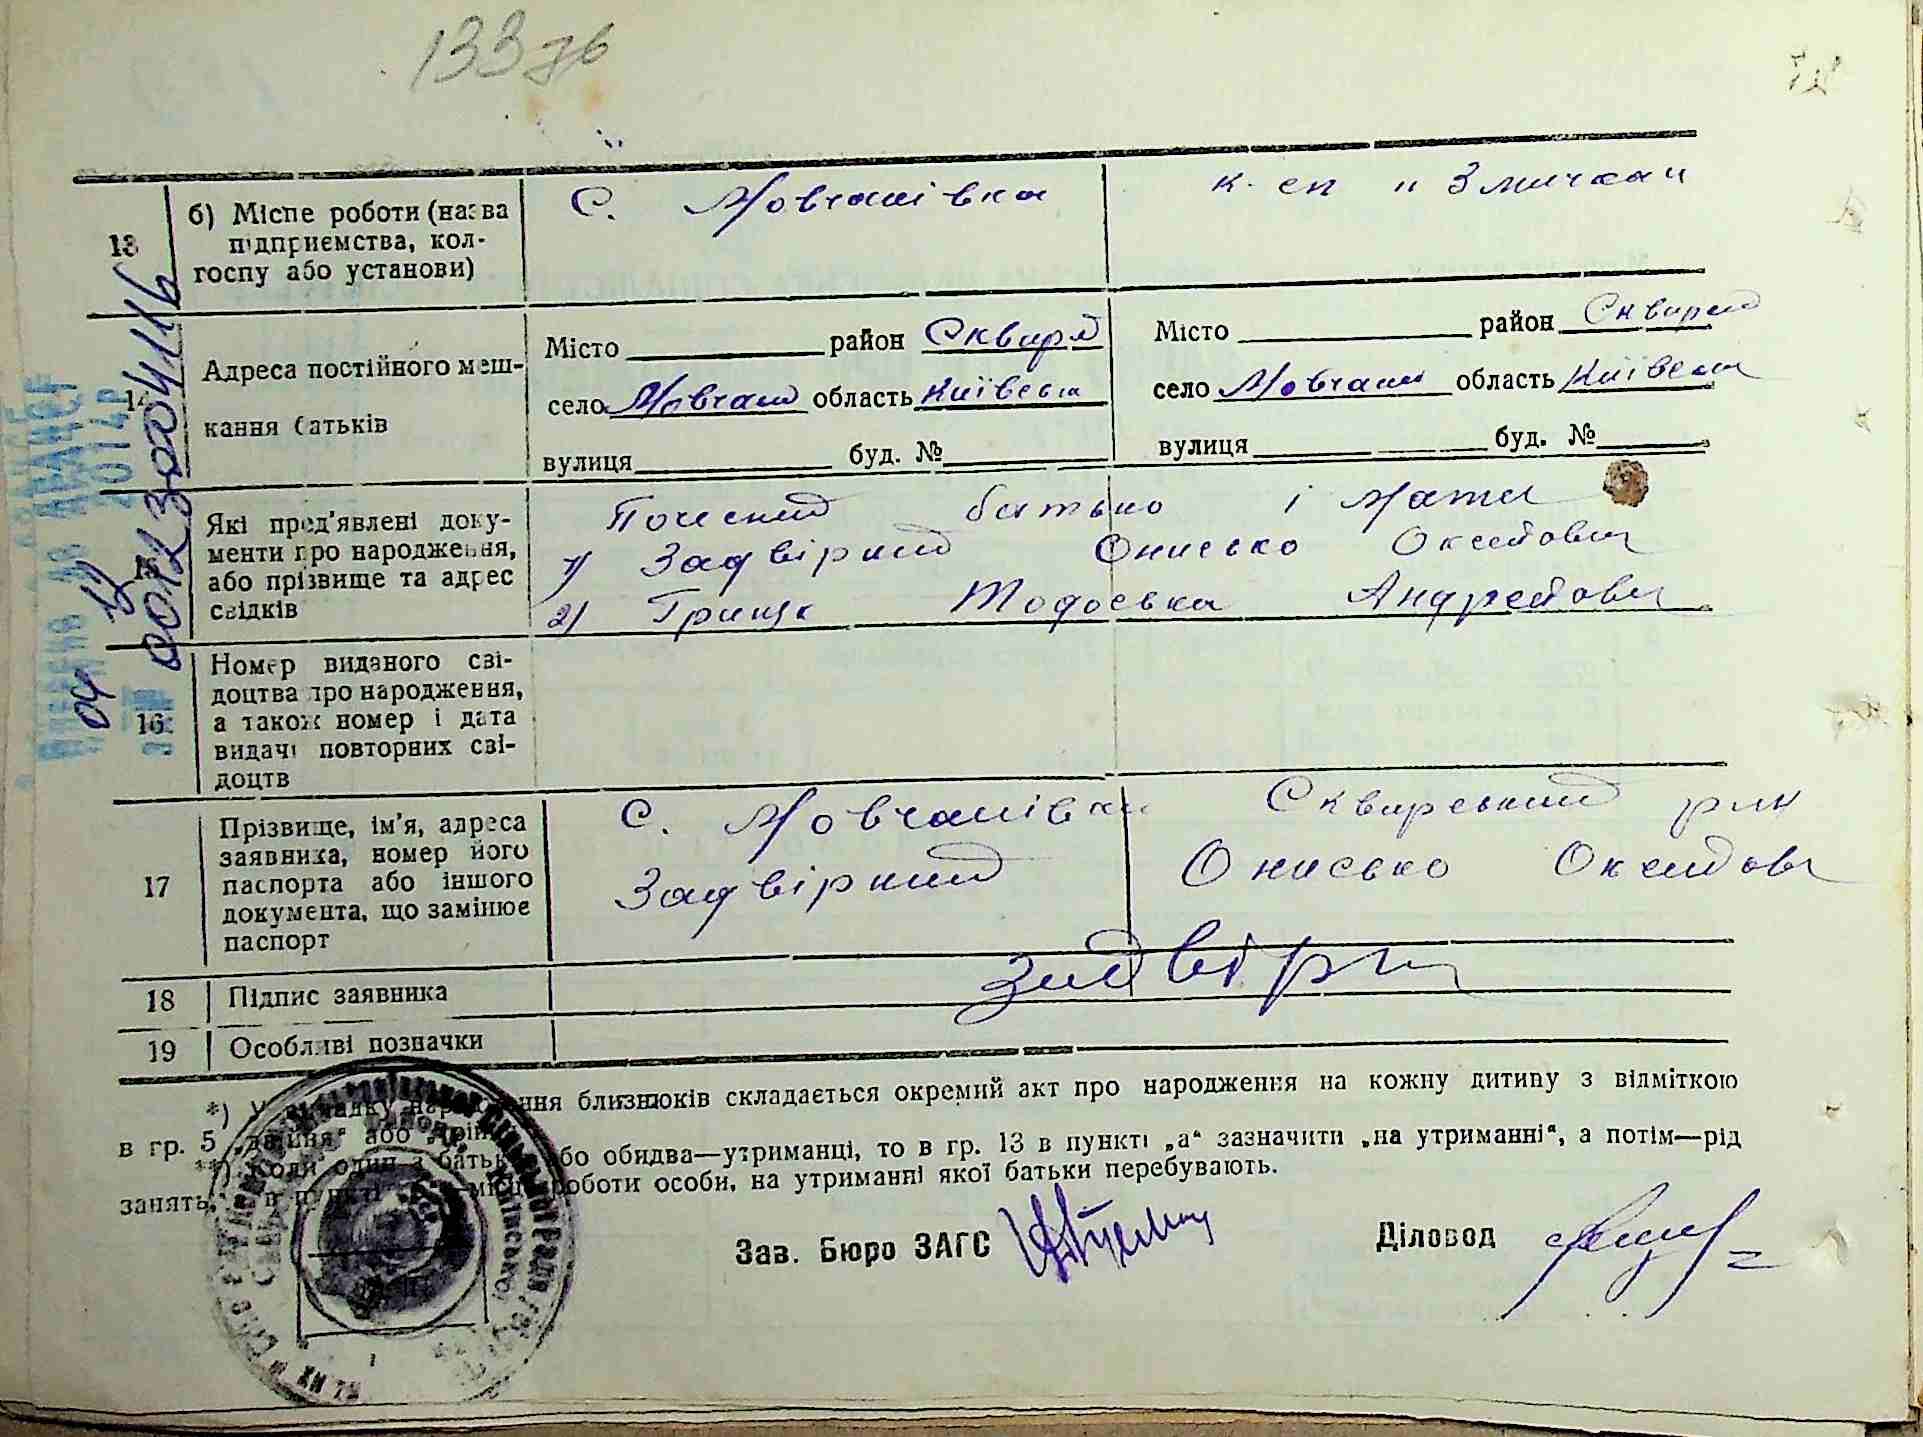 133 зв
13
б) Місце роботи (назва
підприємства, кол-
госпу або установи)
С. Мовчанівка
к-сп "Змичка"
14
Адреса постійного меш-
кання батьків
Місто район Сквир
село Мовчан область Київськ
вулиця буд. №
Місто район Сквир
село Мовчан область Київськ
вулиця буд. №
Які пред'явлені доку-
менти про народження,
або прізвище та адрес
свідків
батько і мати
1) Задвірний Онисько
2) Грищк Тодоська Андреївн
00123004116
16
Номер виданого сві-
доцтва про народження,
а також номер і дата
видачі повторних сві-
доцтв
17
Прізвище, ім'я, адреса
заявника, номер його
паспорта або іншого
документа, що замінює
паспорт
С. Мовчанівка Сквирський р-н
Задвірний Онисько
18
Підпис заявника
Задвірн
19
Особливі позначки
*) У випадку народження близнюків складається окремий акт про народження на кожну дитину з відміткою
в гр. 5 „двійня“ або „трійня“
**) Коли один з батьків або обидва—утриманці, то в гр. 13 в пункті „а“ зазначити „на утриманні“, а потім—рід
занять, в пункті місце роботи особи, на утриманні якої батьки перебувають.
Зав. Бюро ЗАГС
Діловод